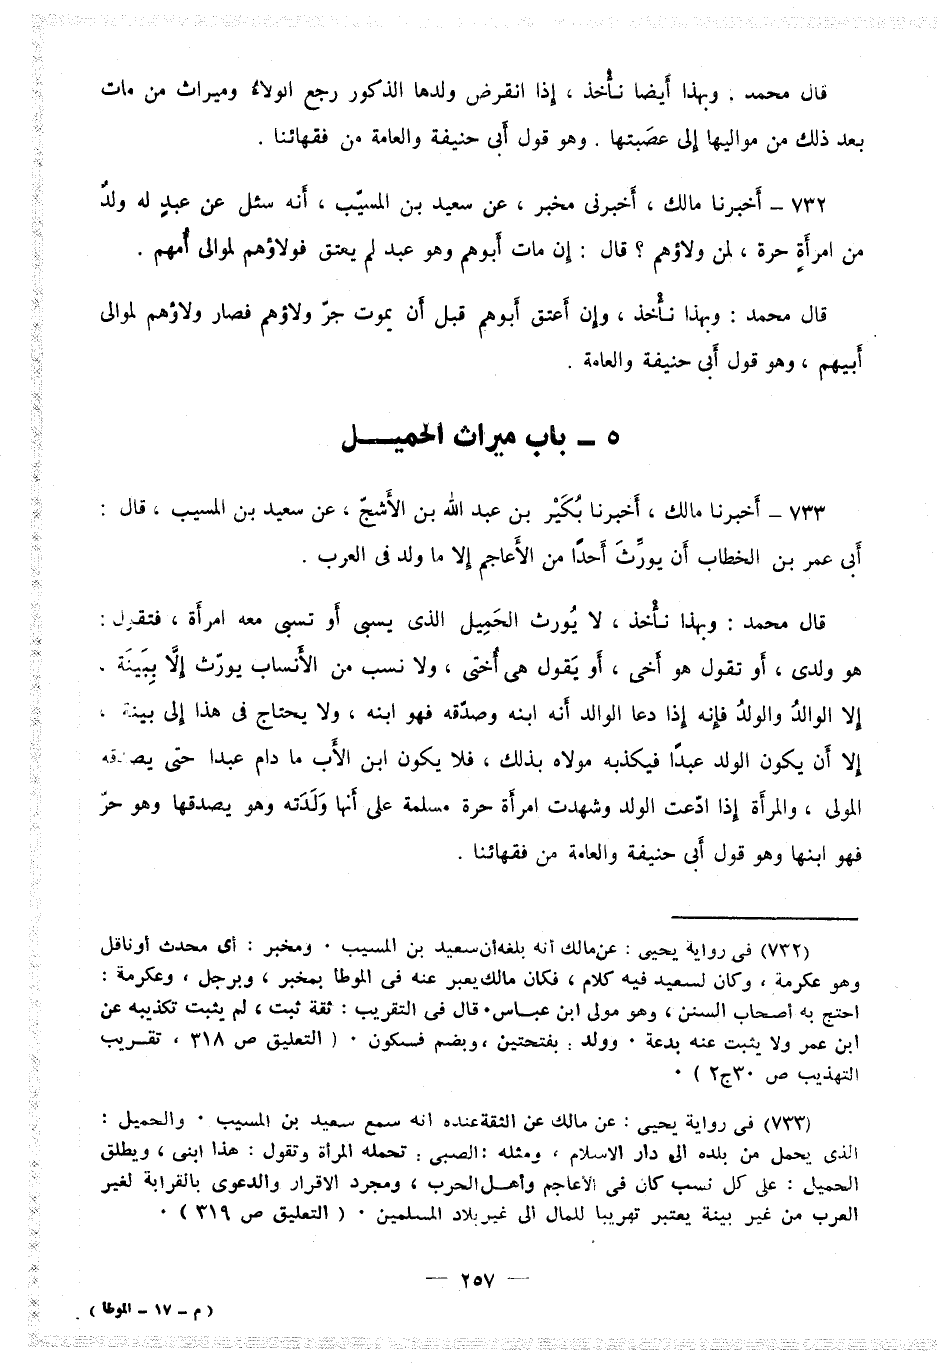 قال محمد : وبهذا أيضا نأُخذ ، إذا انقرض ولدها الذكور رجع الولاء وميراث من مات
بعد ذلك من مواليها إلى عصَبتها . وهو قول أبى حنيفة والعامة من فقهائنا .
٧٣٢ – أخبرنا مالك ، أخبرنى مخبر ، عن سعيد بن المسيّب ، أنه سئل عن عبدٍ له ولدٌ
من امرأةٍ حرة ، لمن ولاؤهم ؟ قال : إن مات أبوهم وهو عبد لم يعتق فولاؤهم لموالى أُمهم .
قال محمد : وبهذا نأُخذ ، وإن أعتق أبوهم قبل أن يموت جرّ ولاؤهم فصار ولاؤهم لموالى
أبيهم ، وهو قول أبى حنيفة والعامة .
٥ – باب ميراث الحميل
٧٣٣ – أخبرنا مالك ، أخبرنا بُكَيْر بن عبد الله بن الأَشجّ ، عن سعيد بن المسيب ، قال :
أبى عمر بن الخطاب أن يورِّثَ أحدًا من الأَعاجم إلا ما ولد فى العرب .
قال محمد : وبهذا نأُخذ ، لا يُورث الحَمِيل الذى يسبى أو تسبى معه امرأة ، فتقول :
هو ولدى ، أو تقول هو أخى ، أو يَقول هى أُختى ، ولا نسب من الأَنساب يورّث إلَّا بِبَيِنَة .
إلا الوالدُ والولدُ فإنه إذا دعا الوالد أنه ابنه وصدّقه فهو ابنه ، ولا يحتاج فى هذا إلى بينة ،
إلا أن يكون الولد عبدًا فيكذبه مولاه بذلك ، فلا يكون ابن الأَب ما دام عبدا حتى يصدقه
المولى ، والمرأة إذا ادّعت الولد وشهدت امرأة حرة مسلمة على أنها وَلَدَته وهو يصدقها وهو حرّ
فهو ابنها وهو قول أبى حنيفة والعامة من فقهائنا .
(٧٣٢) فى رواية يحيى : عن مالك أنه بلغه أن سعيد بن المسيب ٠ ومخبر : أى محدث أو ناقل
وهو عكرمة ، وكان لسعيد فيه كلام ، فكان مالك يعبر عنه فى الموطا بمخبر ، وبرجل ، وعكرمة :
احتج به أصحاب السنن ، وهو مولى ابن عباس ٠ قال فى التقريب : ثقة ثبت ، لم يثبت تكذيبه عن
ابن عمر ولا يثبت عنه بدعة ٠ وولد : بفتحتين ، وبضم فسكون ٠ ( التعليق ص ٣١٨ ، تقريب
التهذيب ص ٣٠ ج٢ ) ٠
(٧٣٣) فى رواية يحيى : عن مالك عن الثقة عنده انه سمع سعيد بن المسيب ٠ والحميل :
الذى يحمل من بلده الى دار الاسلام ، ومثله : الصبى : تحمله المرأة وتقول : هذا ابنى ، ويطلق
الحميل : على كل نسب كان فى الأعاجم وأهل الحرب ، ومجرد الاقرار والدعوى بالقرابة لغير
العرب من غير بينة يعتبر تهريبا للمال الى غير بلاد المسلمين ٠ ( التعليق ص ٣١٩ ) ٠
— ٢٥٧ —
( م – ١٧ – الموطا )